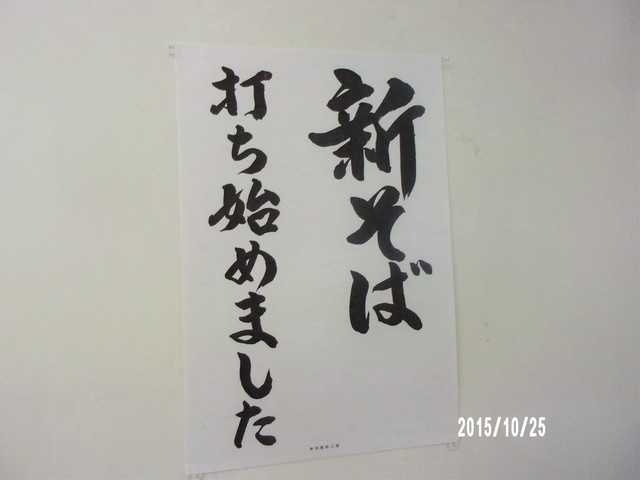 新そば
打ち始めました
2015/10/25